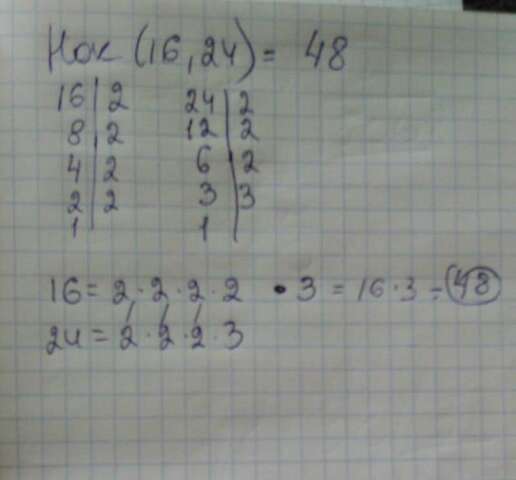 Нок (16,24) = 48
16|2 24|2
8|2 12|2
4|2 6|2
2|2 3|3
1| 1|
16 = 2·2·2·2 · 3 = 16·3 = 48
24 = 2·2·2·3